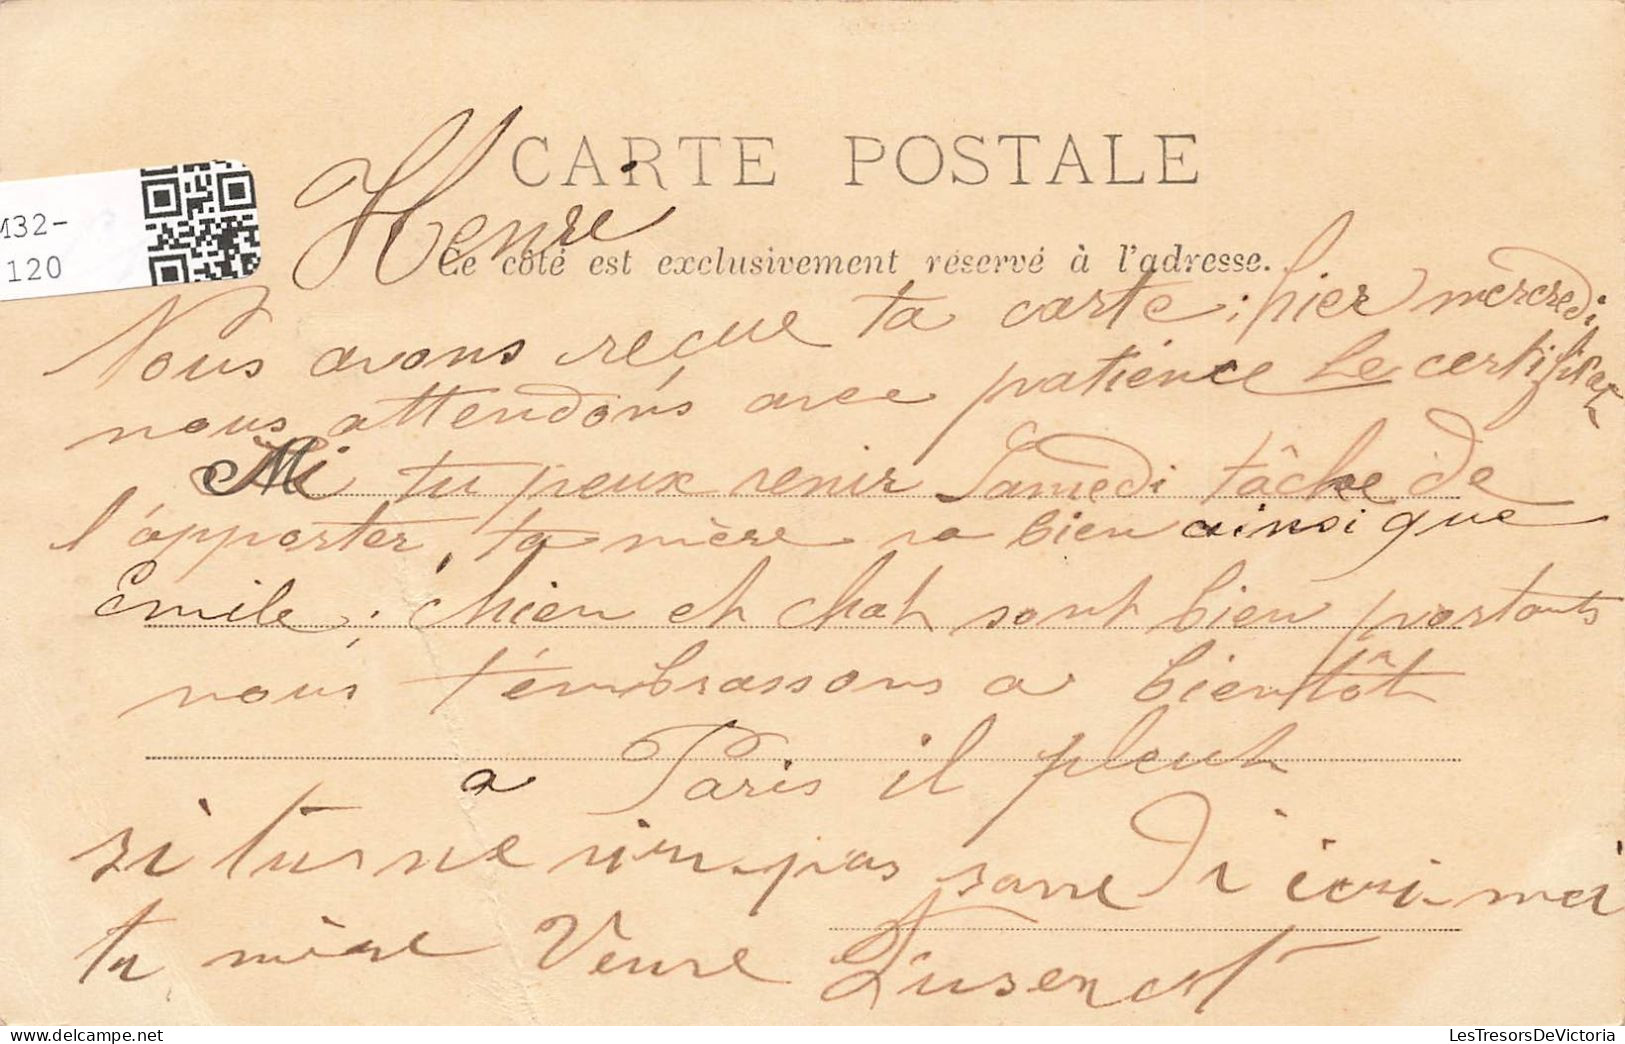 CARTE POSTALE
Henri
Ce côté est exclusivement réservé à l'adresse.
M32-
120
Nous avons reçue ta carte; hier mercredi,
nous attendons avec patience Le certificat
Si tu peux venir Samedi tâche de
l'apporter, ta mère va bien ainsi que
Emile; chien et chat sont bien portants
nous t'embrassons a bientôt
a Paris il pleut
si tu ne viens pas samedi écri-moi
ta mère Veuve
LesTresorsDeVictoria.com